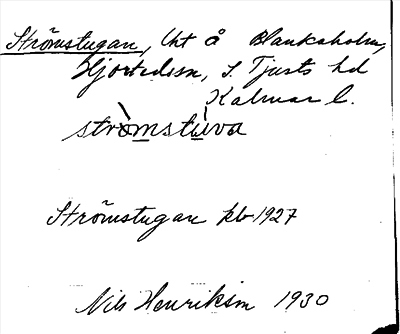 Strömstugan, Lht å Blankaholm,
Hjorteds sn, S. Tjusts hd
Kalmar l.
strò̀mstùva
Strömstugan kb 1927
Nils Henrikson 1930